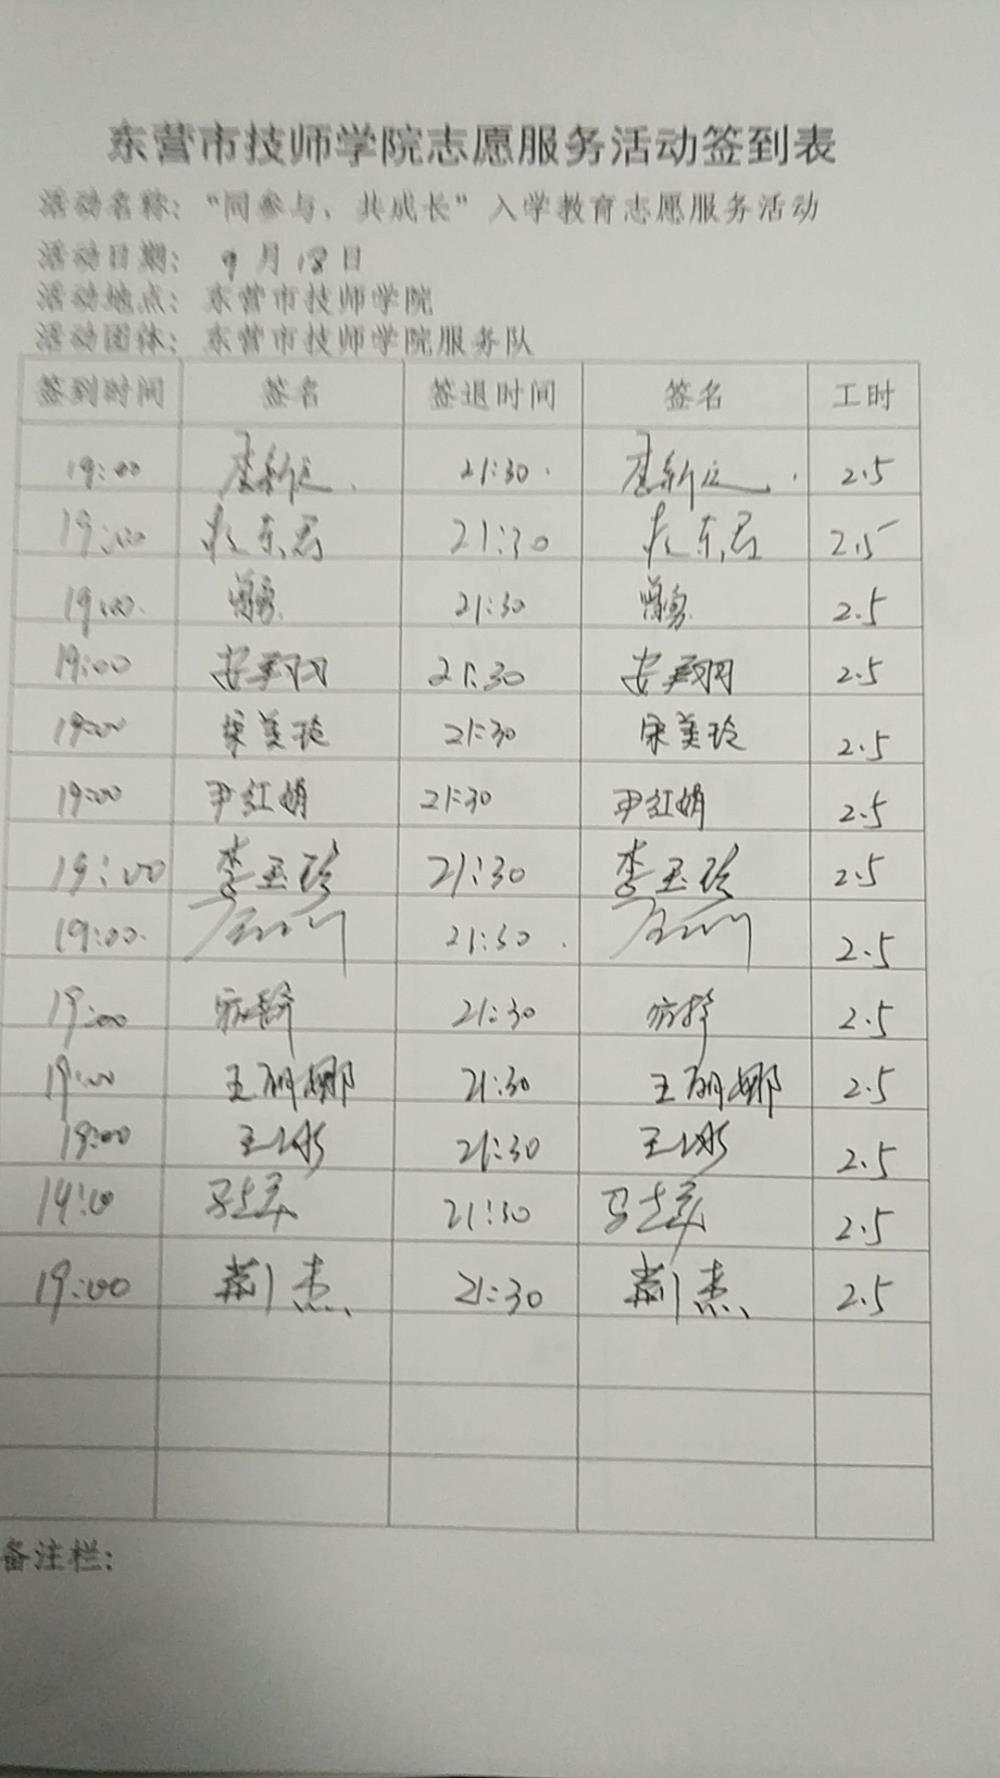 东营市技师学院志愿服务活动签到表
活动名称：“同参与、共成长”入学教育志愿服务活动
活动日期： 9月18日
活动地点： 东营市技师学院
活动团体： 东营市技师学院服务队
签到时间 签名 签退时间 签名 工时
19:00 21:30 2.5
19:00 21:30 2.5
19:00 21:30 2.5
19:00 安翔羽 21:30 安翔羽 2.5
19:00 宋美玲 21:30 宋美玲 2.5
19:00 尹红娟 21:30 尹红娟 2.5
19:00 李玉珍 21:30 李玉珍 2.5
19:00 21:30 2.5
19:00 21:30 2.5
19:00 王丽娜 21:30 王丽娜 2.5
19:00 21:30 2.5
19:00 21:30 2.5
19:00 荆杰 21:30 荆杰 2.5
备注栏：